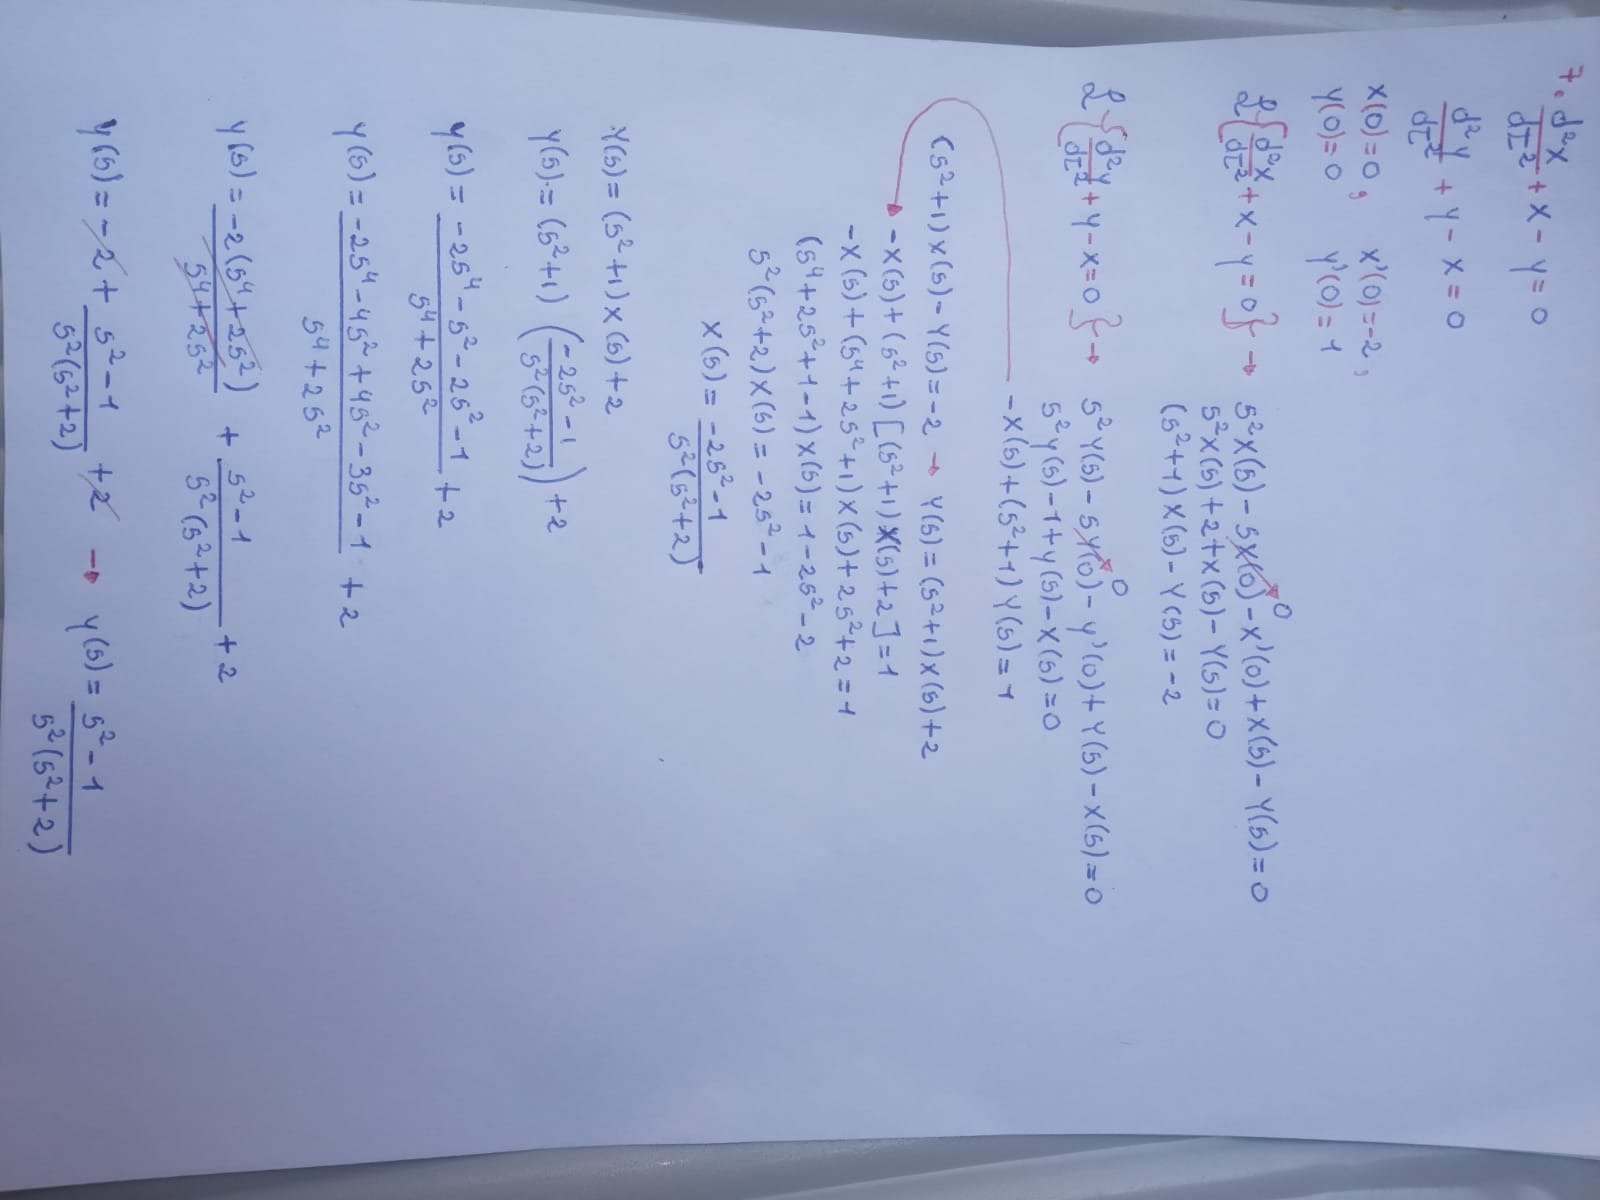 7. d²x/dt² + x - y = 0
d²y/dt² + y - x = 0
x(0)=0, x'(0)=-2,
y(0)=0 y'(0)=1
ℒ{d²x/dt² + x - y = 0} → s²X(s) - sx(0) - x'(0) + X(s) - Y(s) = 0
0
s²X(s) + 2 + X(s) - Y(s) = 0
(s²+1)X(s) - Y(s) = -2
ℒ{d²y/dt² + y - x = 0} → s²Y(s) - sy(0) - y'(0) + Y(s) - X(s) = 0
0
s²y(s) - 1 + y(s) - X(s) = 0
-X(s) + (s²+1)Y(s) = 1
(s²+1)X(s) - Y(s) = -2 → Y(s) = (s²+1)X(s) + 2
-X(s) + (s²+1)[(s²+1)X(s) + 2] = 1
-X(s) + (s⁴+2s²+1)X(s) + 2s² + 2 = 1
(s⁴+2s²+1-1)X(s) = 1 - 2s² - 2
s²(s²+2)X(s) = -2s² - 1
X(s) = (-2s²-1)/(s²(s²+2))
Y(s) = (s²+1)X(s) + 2
Y(s) = (s²+1)((-2s²-1)/(s²(s²+2))) + 2
Y(s) = (-2s⁴-s²-2s²-1)/(s⁴+2s²) + 2
Y(s) = (-2s⁴-4s²+4s²-3s²-1)/(s⁴+2s²) + 2
Y(s) = -2(s⁴+2s²)/(s⁴+2s²) + (s²-1)/(s²(s²+2)) + 2
Y(s) = -2 + (s²-1)/(s²(s²+2)) + 2 → Y(s) = (s²-1)/(s²(s²+2))